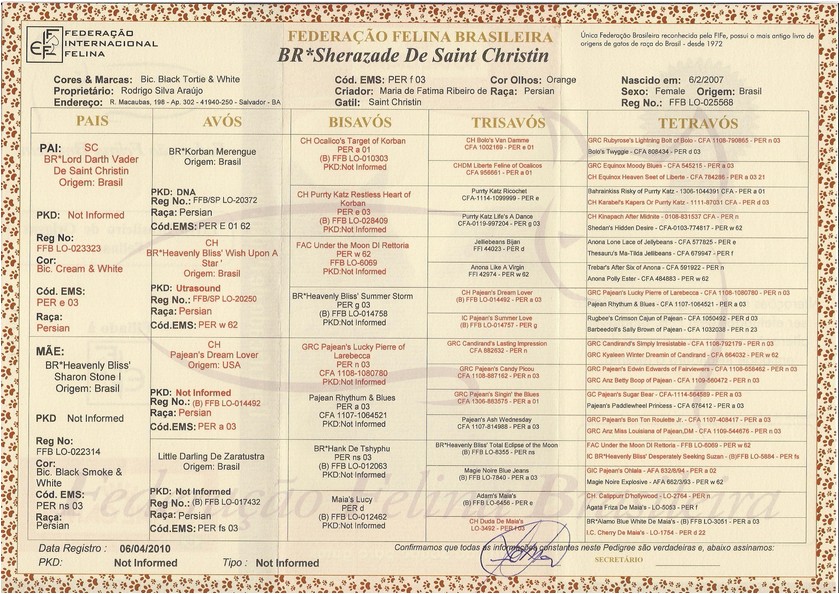 FEDERAÇÃO
INTERNACIONAL
FELINA
FEDERAÇÃO FELINA BRASILEIRA
BR*Sherazade De Saint Christin
Única Federação Brasileira reconhecida pela FIFe, possui o mais antigo livro de
origens de gatos de raça do Brasil - desde 1972
Cores & Marcas: Bic. Black Tortie & White
Proprietário: Rodrigo Silva Araújo
Endereço: R. Macaubas, 198 - Ap. 302 - 41940-250 - Salvador - BA
Cód. EMS: PER f 03 Cor Olhos: Orange
Criador: Maria de Fatima Ribeiro de Raça: Persian
Gatil: Saint Christin
Nascido em: 6/2/2007
Sexo: Female Origem: Brasil
Reg No.: FFB LO-025568
PAIS
PAI: SC
BR*Lord Darth Vader
De Saint Christin
Origem: Brasil
PKD: Not Informed
Reg No:
FFB LO-023323
Cor:
Bic. Cream & White
Cód. EMS:
PER e 03
Raça:
Persian
MÃE:
BR*Heavenly Bliss'
Sharon Stone I
Origem: Brasil
PKD Not Informed
Reg No:
FFB LO-022314
Cor:
Bic. Black Smoke &
White
Cód. EMS:
PER ns 03
Raça:
Persian
AVÓS
BR*Korban Merengue
Origem: Brasil
PKD: DNA
Reg No.: FFB/SP LO-20372
Raça: Persian
Cód.EMS: PER E 01 62
CH
BR*Heavenly Bliss' Wish Upon A
Star '
Origem: Brasil
PKD: Utrasound
Reg No.: FFB/SP LO-20250
Raça: Persian
Cód.EMS: PER w 62
CH
Pajean's Dream Lover
Origem: USA
PKD: Not Informed
Reg No.: (B) FFB LO-014492
Raça: Persian
Cód.EMS: PER a 03
Little Darling De Zaratustra
Origem: Brasil
PKD: Not Informed
Reg No.: (B) FFB LO-017432
Raça: Persian
Cód.EMS: PER fs 03
BISAVÓS
CH Ocalico's Target of Korban
PER a 01
(B) FFB LO-010303
PKD:Not Informed
CH Purrty Katz Restless Heart of
Korban
PER e 03
(B) FFB LO-028409
PKD:Not Informed
FAC Under the Moon DI Rettoria
PER w 62
FFB LO-6069
PKD:Not Informed
BR*Heavenly Bliss' Summer Storm
PER g 03
(B) FFB LO-014758
PKD:Not Informed
GRC Pajean's Lucky Pierre of
Larebecca
PER n 03
CFA 1108-1080780
PKD:Not Informed
Pajean Rhythum & Blues
PER a 03
CFA 1107-1064521
PKD:Not Informed
BR*Hank De Tshyphu
PER ns 03
(B) FFB LO-012063
PKD:Not Informed
Maia's Lucy
PER d
(B) FFB LO-012462
PKD:Not Informed
TRISAVÓS
CH Bolo's Van Damme
CFA 1002169 - PER a 01
CHDM Liberte Feline of Ocalicos
CFA 956661 - PER a 01
Purrty Katz Ricochet
CFA-1114-1099999 - PER e
Purrty Katz Life's A Dance
CFA-0119-997204 - PER g 03
Jelliebeans Bijan
FFI 44023 - PER d
Anona Like A Virgin
FFI 42974 - PER w 62
CH Pajean's Dream Lover
(B) FFB LO-014492 - PER a 03
IC Pajean's Summer Love
(B) FFB LO-014757 - PER g
GRC Candirand's Lasting Impression
CFA 882632 - PER n
GRC Pajean's Candy Picou
CFA 1108-887162 - PER n 03
GRC Pajean's Singin' the Blues
CFA 1306-883575 - PER a 01
Pajean's Ash Wednesday
CFA 1107-814988 - PER a 03
BR*Heavenly Bliss' Total Eclipse of the Moon
(B) FFB LO-8355 - PER ns
Magie Noire Blue Jeans
(B) FFB LO-7840 - PER a 03
Adam's Maia's
(B) FFB LO-6456 - PER e
CH Duda De Maia's
LO-3492 - PER f 03
TETRAVÓS
GRC Rubyrose's Lightning Bolt of Bolo - CFA 1108-790865 - PER n 03
Bolo's Twyggie - CFA 808434 - PER d 03
GRC Equinox Moody Blues - CFA 545215 - PER a 03
CH Equinox Heaven Seet of Liberte - CFA 784286 - PER a 03 21
Bahrainkiss Risky of Purrty Katz - 1306-1044391 CFA - PER a 01
CH Karabel's Kapers Or Purrty Katz - 1111-87031 CFA - PER d 03
CH Kinepach After Midnite - 0108-831537 CFA - PER n
Shedan's Hidden Desire - CFA-0103-774817 - PER w 62
Anona Lone Lace of Jellybeans - CFA 577825 - PER e
Thesauru's Ma-Tilda Jellibeans - CFA 679947 - PER f
Trebar's After Six of Anona - CFA 591922 - PER n
Anona Polly Ester - CFA 484883 - PER w 62
GRC Pajean's Lucky Pierre of Larebecca - CFA 1108-1080780 - PER n 03
Pajean Rhythum & Blues - CFA 1107-1064521 - PER a 03
Rugbee's Crimson Cajun of Pajean - CFA 1050492 - PER d 03
Barbeedoll's Sally Brown of Pajean - CFA 1032038 - PER n 23
GRC Candirand's Simply Irresistable - CFA 1106-792179 - PER n 03
GRC Kyaleen Winter Dreamin of Candirand - CFA 664032 - PER w 62
GRC Pajean's Edwin Edwards of Fairviewers - CFA 1108-658462 - PER n 03
GRC Anz Betty Boop of Pajean - CFA 1109-560472 - PER n 03
GC Pajean's Sugar Bear - CFA-1114-564589 - PER a 03
Pajean's Paddlewheel Princess - CFA 676412 - PER a 03
GRC Pajean's Bon Ton Roulette Jr. - CFA 1107-408417 - PER a 03
GRC Anz Miss Louisiana of Pajean,DM - CFA 1109-544676 - PER n 03
FAC Under the Moon DI Rettoria - FFB LO-6069 - PER w 62
IC BR*Heavenly Bliss' Desperately Seeking Suzan - (B)FFB LO-5884 - PER fs
GIC Pajean's Ohlala - AFA 632/8/94 - PER a 02
Magie Noire Explosive - AFA 662/3/93 - PER w 62
CH. Calippur D'hollywood - LO-2764 - PER n
Agata Friza De Maia's - LO-5053 - PER f
BR*Alamo Blue White De Maia's - (B) FFB LO-3051 - PER a 03
I.C. Cherry De Maia's - LO-1754 - PER d 22
Data Registro : 06/04/2010
PKD: Not Informed Tipo : Not Informed
Confirmamos que todas as informações constantes neste Pedigree são verdadeiras e, abaixo assinamos:
SECRETÁRIO
Federação Felina Brasileira